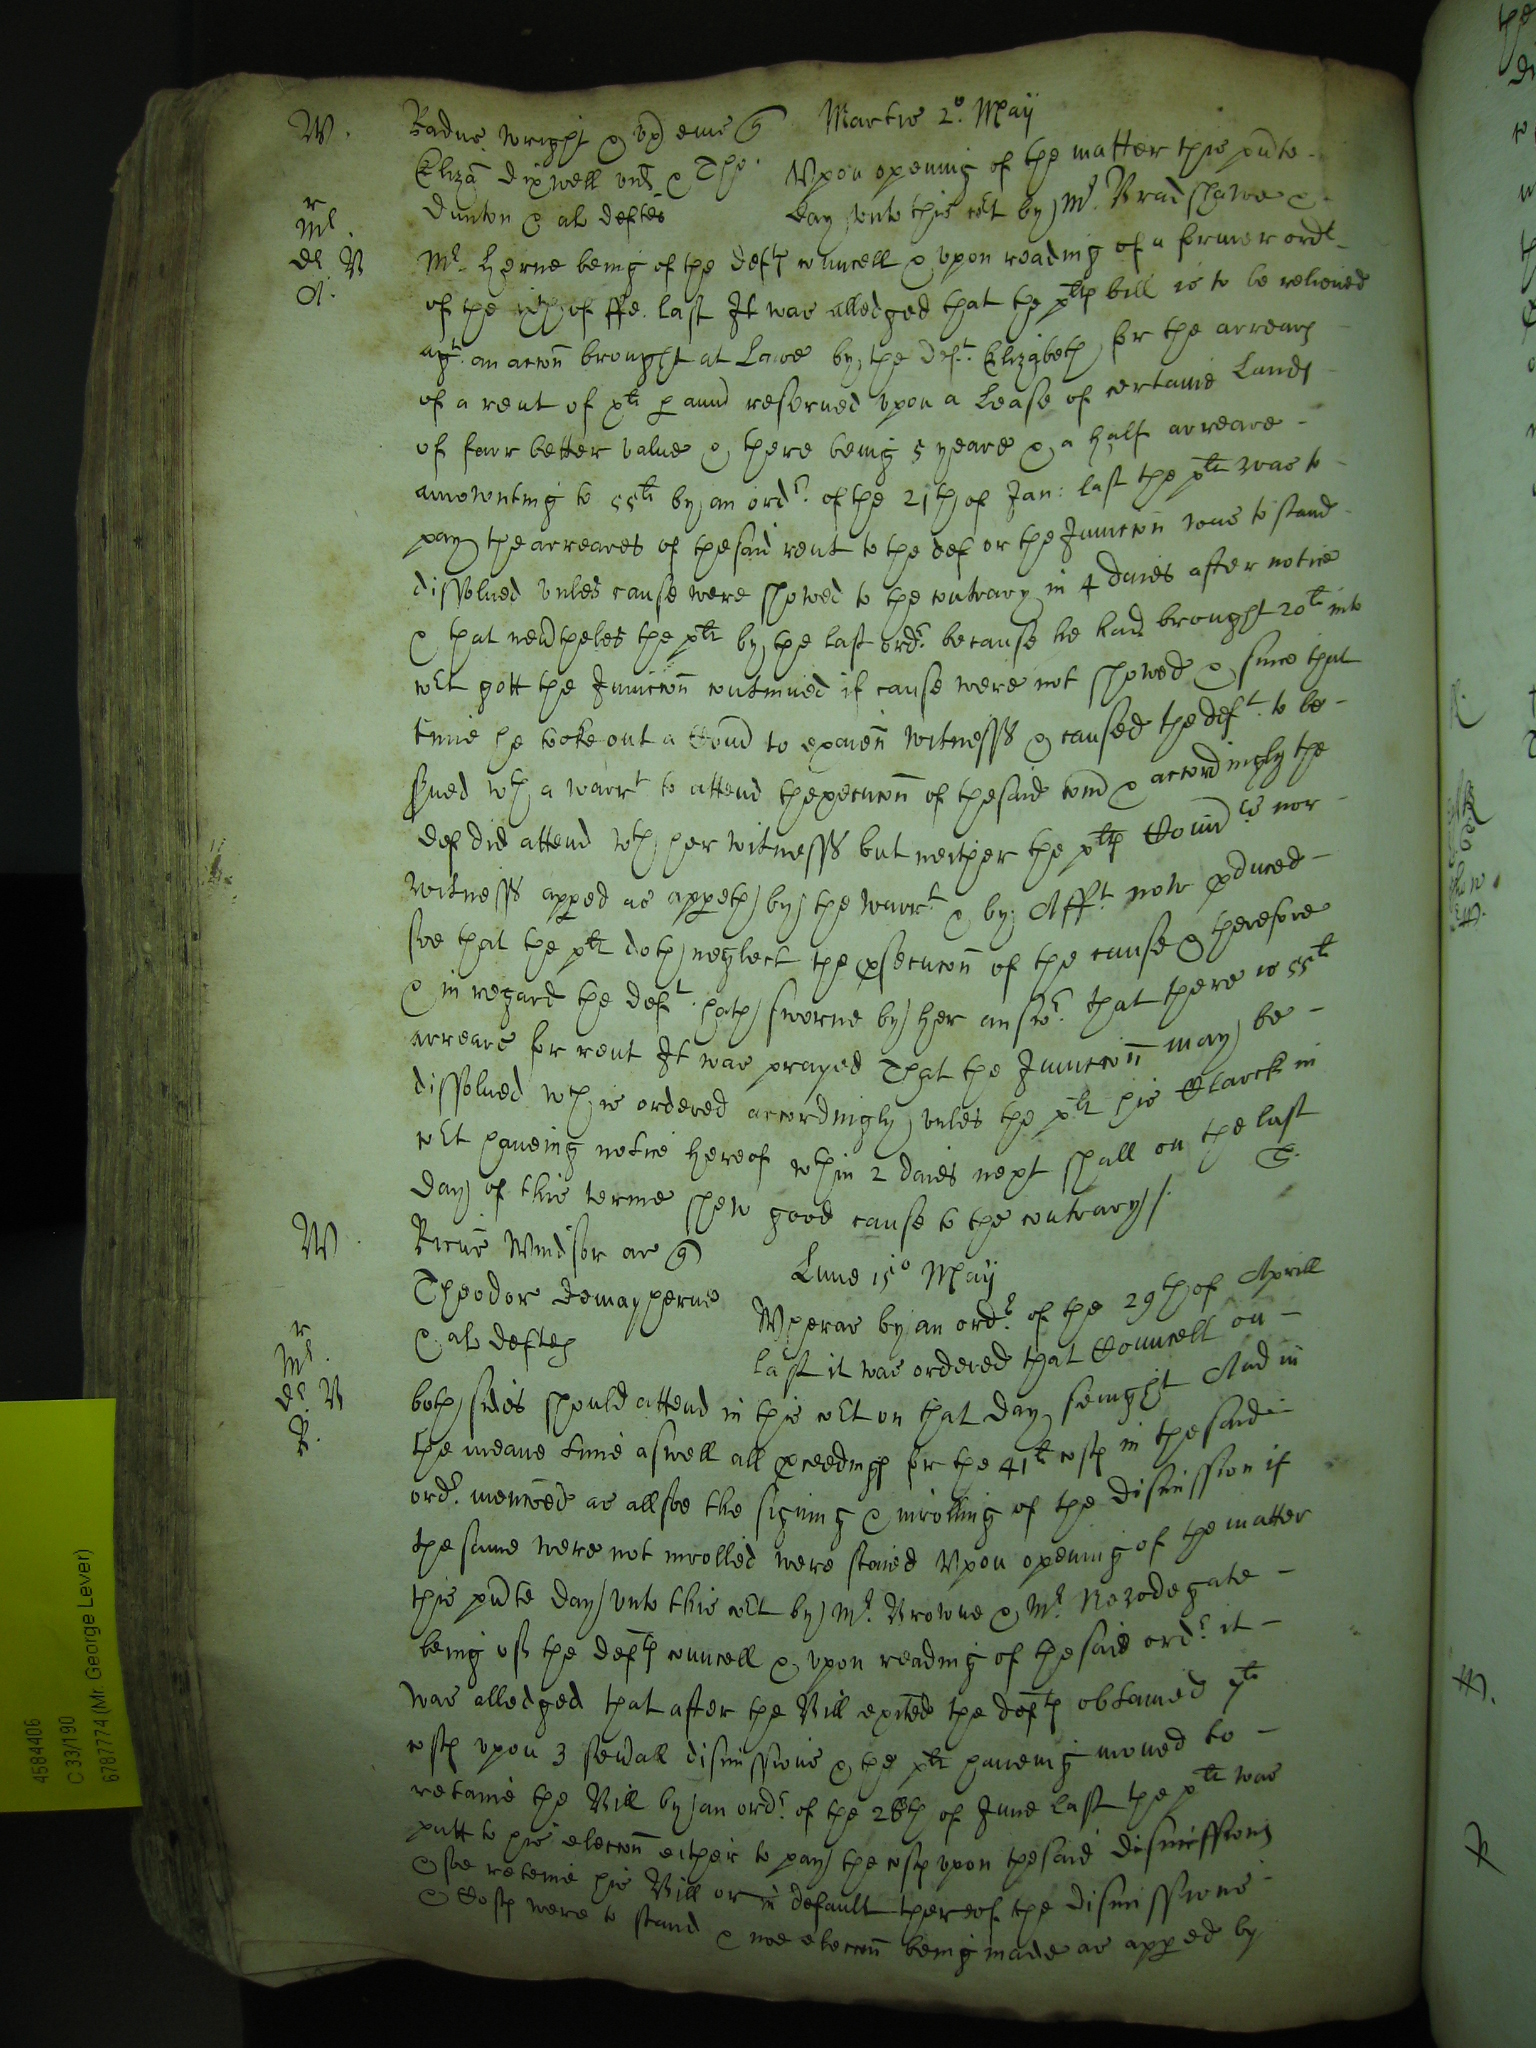 W.
Radus Wright & vx eius q
Martis 2º. Maij
Eliza Dixwell vid & Tho.
Vpon opening of the matter this pnte
Dunton & al deftes
day vnto this cot by Mr. Bradshawe &
r
Mr.
de B
A.
Mr. Herne being of the deftes councell & vpon reading of a former ordr
of the ixth of ffe. last It was alledged that the pltes bill is to be releiued
agt. an accon brought at Lawe by the deft. Elizabeth for the arreares
of a rent of xli p ann reserued vpon a Lease of certaine Landes
of farr better value & there being 5 yeares & a half arreare
amownting to 55li by an ordr. of the 21th of Jan: last the plt was to
pay the arreares of the said rent to the def or the Juniccon was to stand
dissolued vnles cause were shewed to the contrary in 4 daies after notice
& that neutheles the plt by the last ordr. because he had brought 20li into
cot gott the Juniccon continued if cause were not shewed & since that
time he tooke out a Com to exaien witnesses & caused the deft. to be
srued wth a warrt to attend the execucon of the said com & accordingly the
def did attend wth her witnesses but neither the pltes Comrs nor
witnesses apped as appeth by the warrt & by Afft. now pduced
soe that the plt doth neglect the psecucon of the cause & therefore
& in regard the deft. hath sworne by her answr. that there is 55li
arreare for rent It was prayed That the Juniccon may be
dissolued wch is ordered accordingly vnles the plt his Clarck in
cot haueing notice hereof wthin 2 daies next shall on the last
day of this terme shew good cause to the contrary /.
W.
Ricus Windsor ar q
Lune 15º Maij
Theodor demayherne
Wheras by an ordr. of the 29th of Aprill
& al deftes
last it was ordered that Councell on
r
Mr.
de. B
R.
both sides should attend in this cot on that day senight And in
the meane time aswell all pceedinges for the 41li costes in the said
ordr. menconed as allsoe the signing & inrolling of the dismission if
the same were not inrolled were staied Vpon opening of the matter
this pnte day vnto this cot by Mr. Browne & Mr. Newdegate
being of the deftes councell & vpon reading of the said ordr. it
was alledged that after the Bill exited the deftes obtained 7li
costes vpon 3 seuall dismissions & the plt haueing moued to
retaine the Bill by an ordr. of the 28th of June last the plt was
putt to his eleccon either to pay the costes vpon the said dismissions
& soe reteine his Bill or in default thereof the dismissions
& Costes were to stand & noe eleccon being made as apped by
4584406
C 33/190
6787774 (Mr. George Lever)